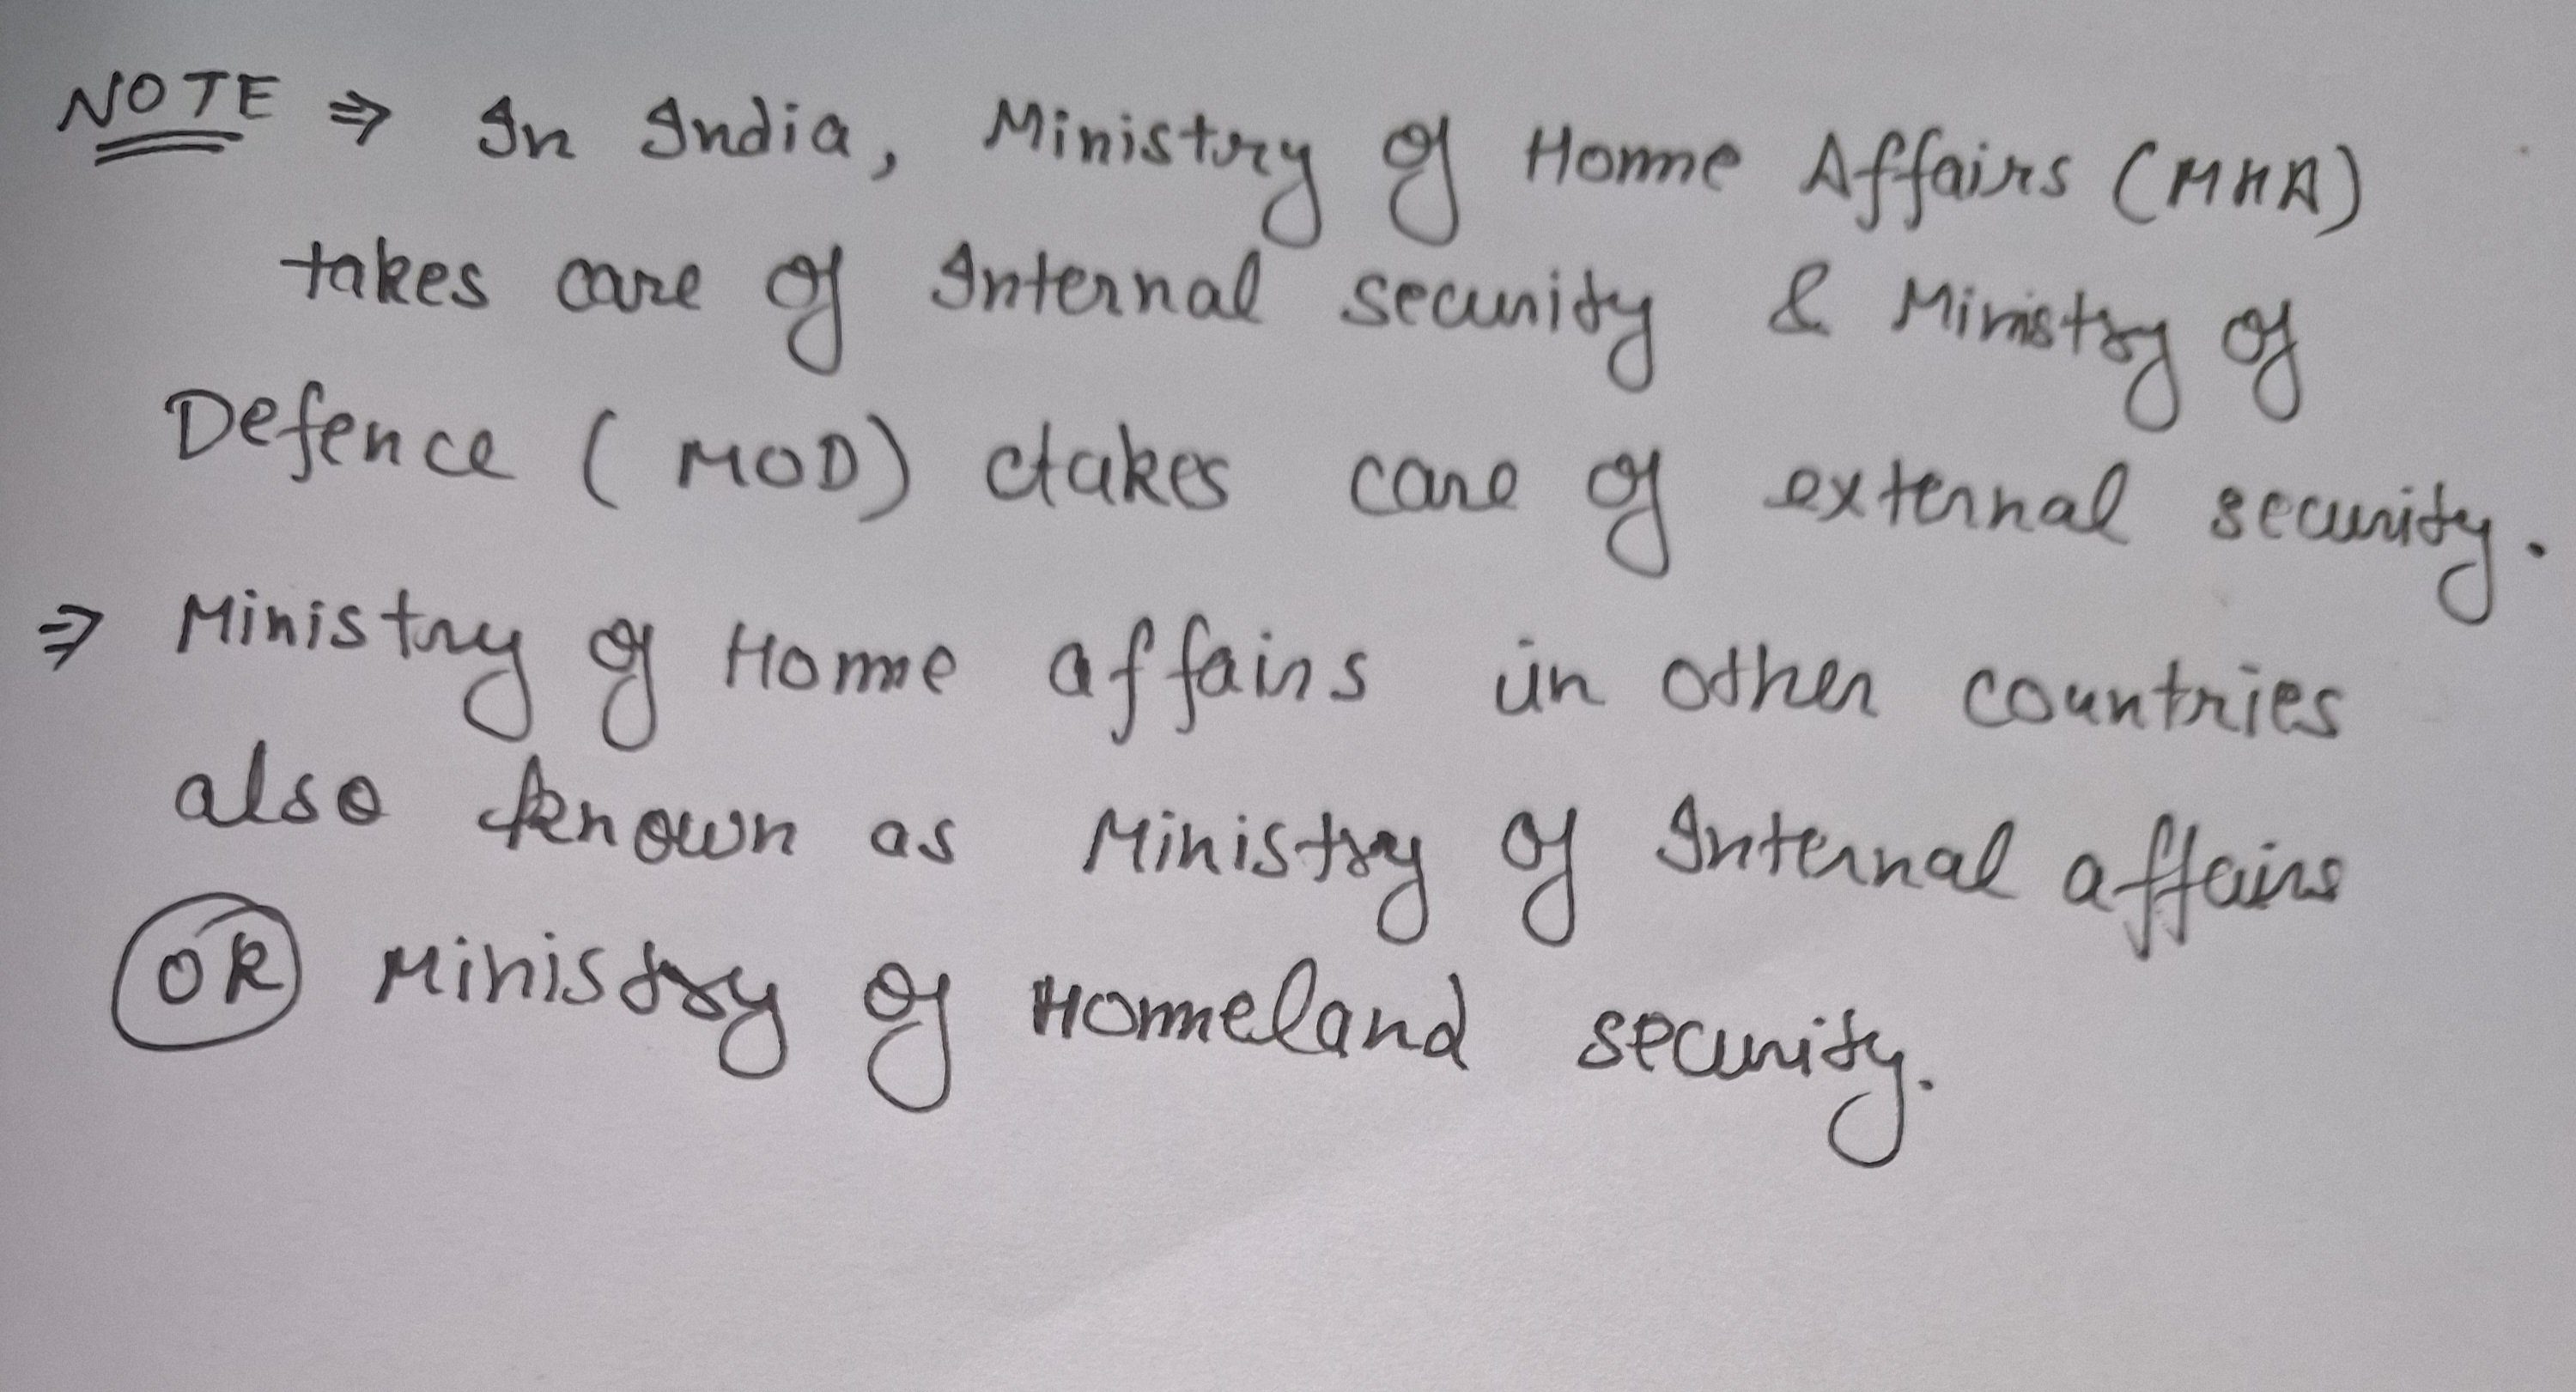 NOTE ⇒ In India, Ministry of Home Affairs (MHA)
takes care of Internal security & Ministry of
Defence (MOD) takes care of external security.
⇒ Ministry of Home affairs in other countries
also known as Ministry of Internal affairs
OR Ministry of Homeland security.